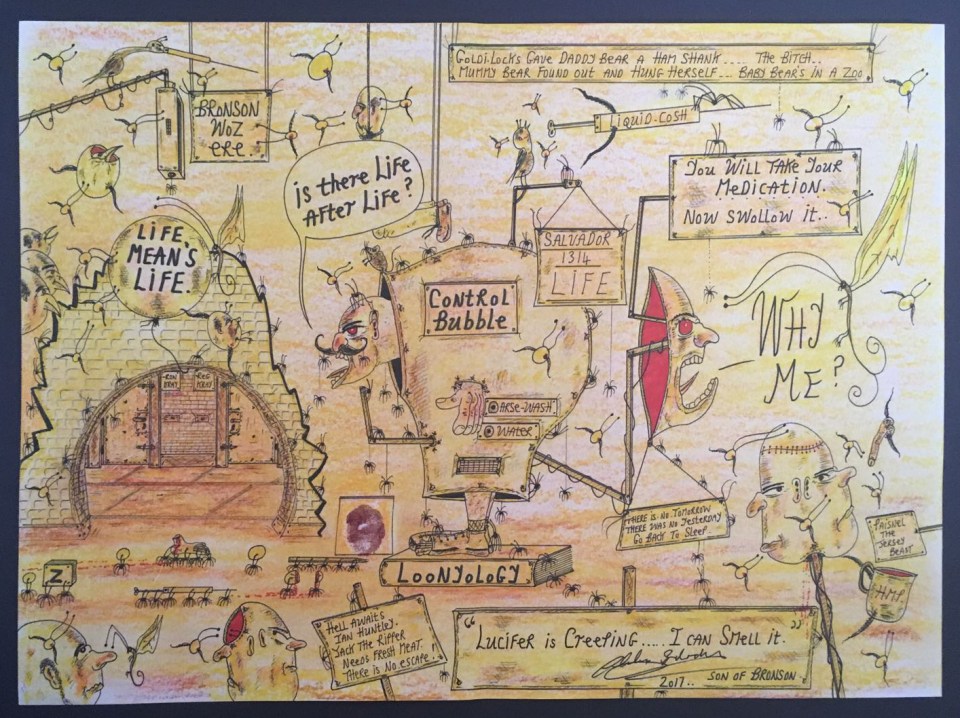 GOLDI.LOCKS GAVE DADDY BEAR A HAM SHANK.... THE BITCH..
MUMMY BEAR FOUND OUT AND HUNG HERSELF... BABY BEAR'S IN A ZOO
BRONSON
WOZ
ERE.
LIQUID-COSH
is there LiFe
AFter LiFe?
YOU WILL TAKE YOUR
MEDICATION.
NOW SWOLLOW IT..
LIFE
MEAN'S
LIFE.
SALVADOR
1314
LIFE
CONTROL
BUBBLE
WHY
ME?
ARSE-WASH
WATER
THERE IS NO TOMORROW
THERE WAS NO YESTERDAY
GO BACK TO SLEEP
PAISNEL
THE
JERSEY
BEAST
LOONYOLOGY
Z
HMP
HELL AWAITS
IAN HUNTLEY.
JACK THE RIPPER
NEEDS FRESH MEAT.
THERE IS NO ESCAPE..
"LUCIFER IS CREEPING.....I CAN SMELL IT."
2017.. SON OF BRONSON